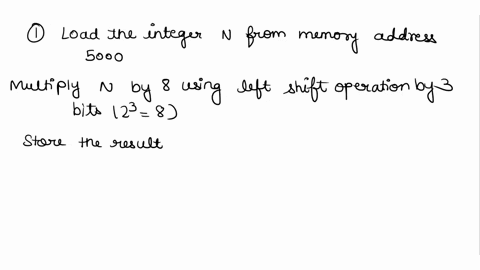 ① Load the integer N from memory address
5000
Multiply N by 8 using left shift operation by 3
bits (2³ = 8)
Store the result